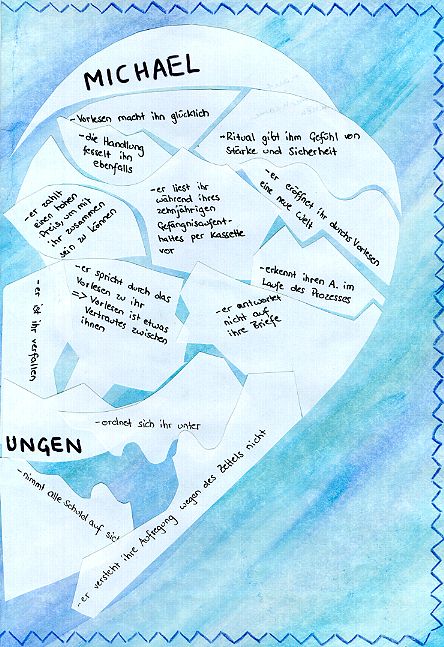 MICHAEL
- Vorlesen macht ihn glücklich
- die Handlung
fesselt ihn
ebenfalls
- Ritual gibt ihm Gefühl von
Stärke und Sicherheit
- er zahlt
einen hohen
Preis, um mit
ihr zusammen
sein zu können
- er liest ihr
während ihres
zehnjährigen
Gefängnisaufent-
haltes per Kassette
vor
- er eröffnet ihr durchs Vorlesen
eine neue Welt
- erkennt ihren A. im
Laufe des Prozesses
- er ist ihr verfallen
- er spricht durch das
Vorlesen zu ihr
=> Vorlesen ist etwas
Vertrautes zwischen
ihnen
- er antwortet
nicht auf
ihre Briefe
- ordnet sich ihr unter
UNGEN
- nimmt alle Schuld auf sich
- er versteht ihre Aufregung wegen des Zettels nicht